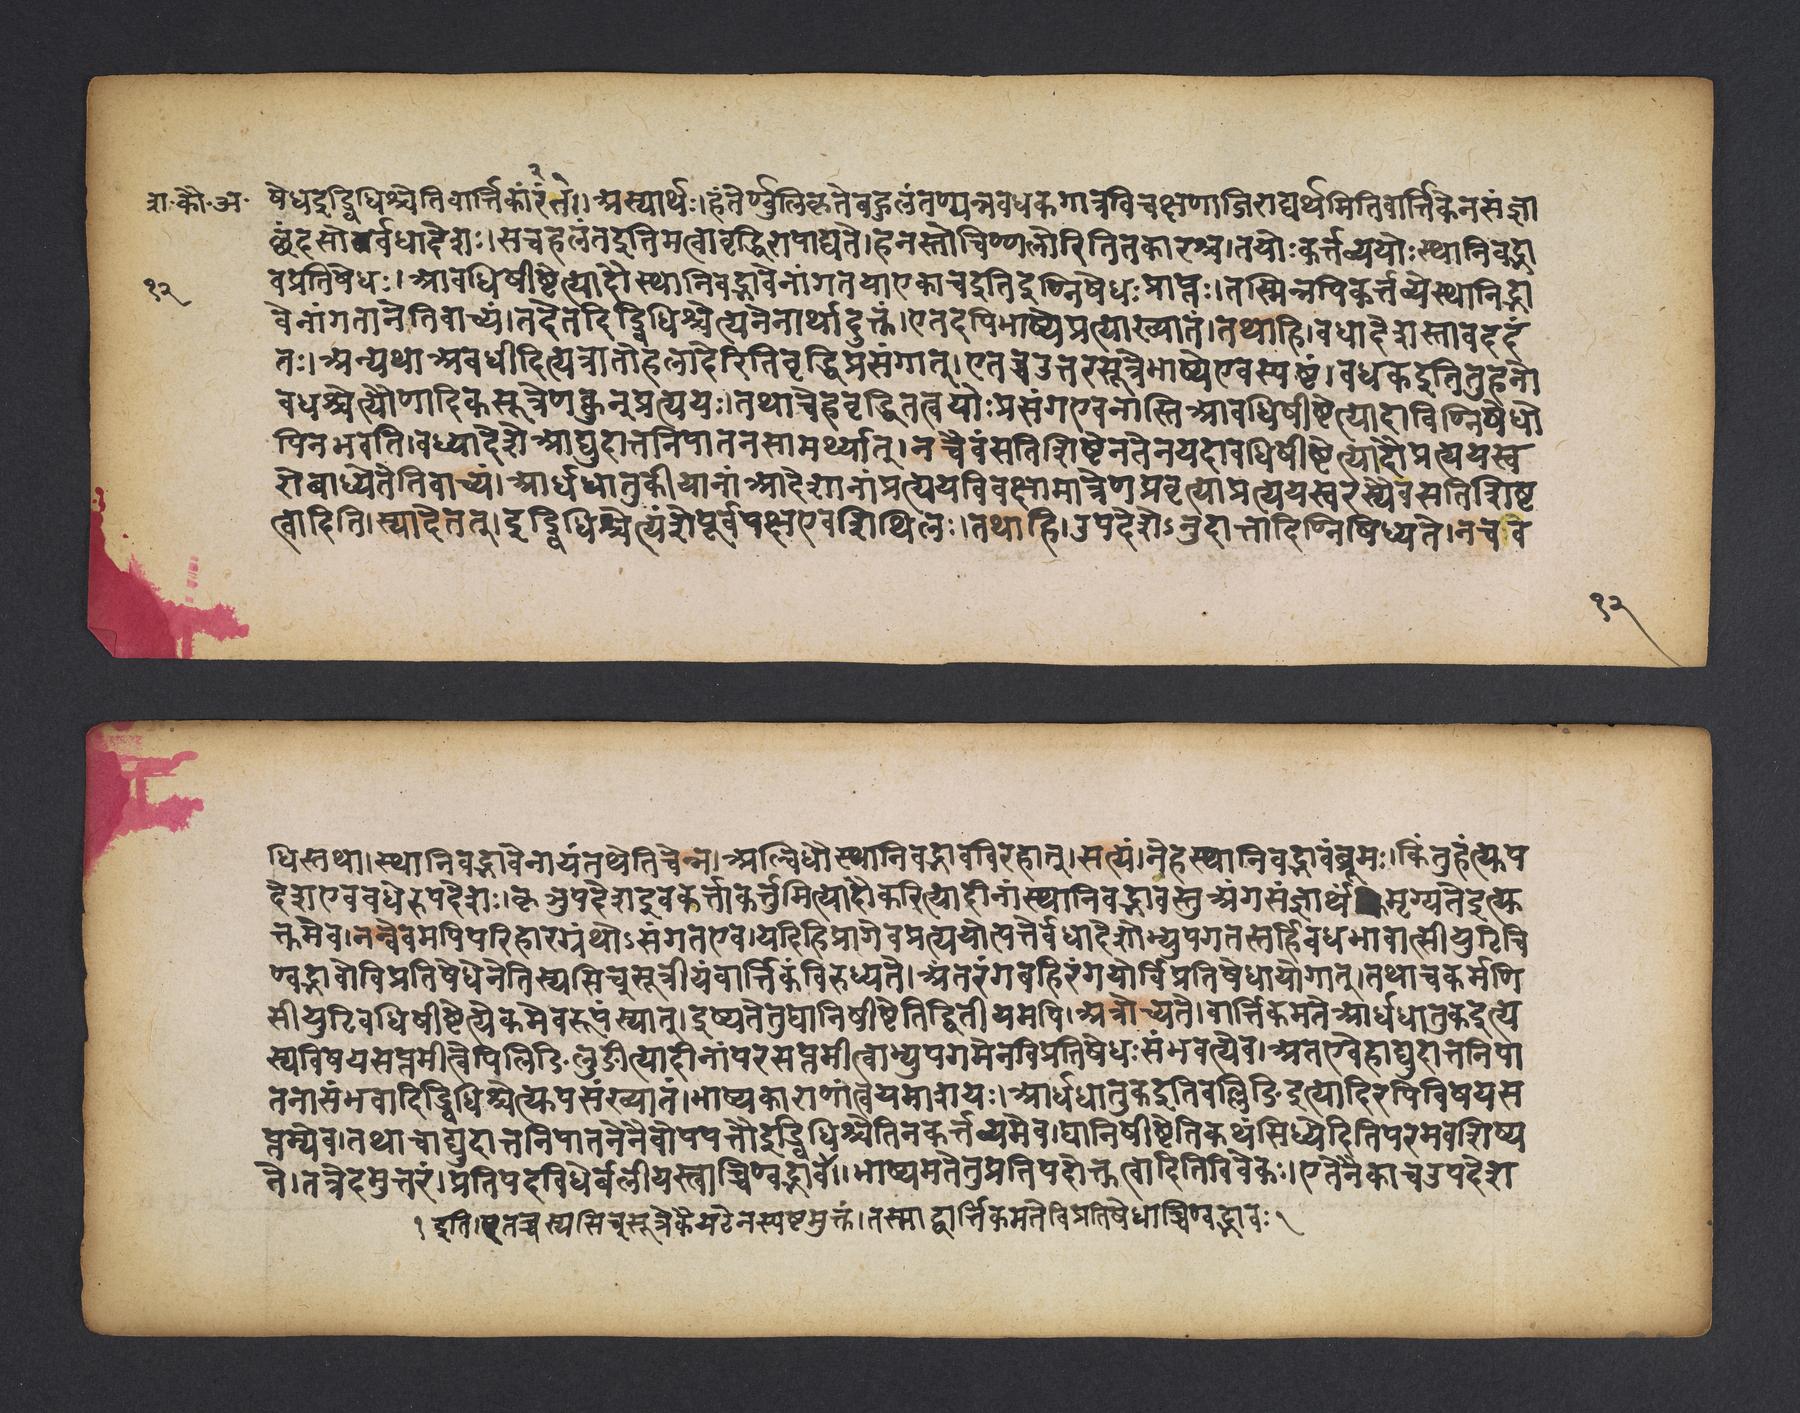 शा॰ कौ॰ अ॰
षेधइड्विधिश्चेतिवार्त्तिकारंते।।अस्यार्थः।हंतेर्ण्वुलिकृतेबहुलंतण्यन्नवधकगात्रविचक्षणाजिराद्यर्थमितिवार्त्तिकेनसंज्ञा
छंदसोर्वधादेशः।सचहलंतइतिमत्वावृद्धिरापाद्यते।हनस्तोचिण्णलोरितितकारश्च।तयोःकर्त्तव्ययोःस्थानिवद्भा
१२
वप्रतिषेधः।आवधिषीष्टेत्यादौस्थानिवद्भावेनांगतयाएकाचइतिइण्निषेधःप्राप्तः।तस्मिन्नपिकर्त्तव्येस्थानिद्भा
वेनांगतानेतिवाच्यं।तदेतदिड्विधिश्चेत्यनेनार्थादुक्तं।एतदपिभाष्येप्रत्याख्यातं।तथाहि।वधादेशस्तावददं
तः।अन्यथाअवधीदित्यत्रातोहलादेरितिवृद्धिप्रसंगात्।एतच्चउत्तरसूत्रेभाष्येएवस्पष्टं।वधकइतितुहनो
वधश्चेत्यौणादिकसूत्रेणक्वुन्प्रत्ययः।तथाचेहवृद्धितत्वयोःप्रसंगएवनास्तिआवधिषीष्टेत्यादाविण्निषेधो
पिनभवति।वध्यादेशेआद्युदात्तनिपातनसामर्थ्यात्।नचैवंसतिशिष्टेनतेनयदावधिषीष्टेत्यादौप्रत्ययस्व
रोबाध्येतेतिवाच्यं।आर्धधातुकीयानांआदेशानांप्रत्ययविवक्षामात्रेणप्रवृत्त्याप्रत्ययस्वरस्यैवसतिशिष्ट
त्वादिति।स्यादेतत्।इड्विधिश्चेत्यंशेपूर्वपक्षएवशिथिलः।तथाहि।उपदेशेऽनुदात्तादिण्निषिध्यते।नचव
१२
धिस्तथा।स्थानिवद्भावेनायंतथेतिचेन्न।अल्विधौस्थानिवद्भावविरहात्।सत्यं।नेहस्थानिवद्भावंब्रूमः।किंतुहंत्युप
देशएववधेरुपदेशः।कृञुपदेशइवकर्त्ताकर्त्तुमित्यादौकरित्यादीनांस्थानिवद्भावस्तुअंगसंज्ञार्थंमृग्यतेइत्यु
क्तमेव।नन्वेवमपिपरिहारग्रंथोऽसंगतएव।यदिहिप्रागेवप्रत्ययोत्पत्तेर्वधादेशोभ्युपगतस्तर्हिवधभावात्सीयुटिचि
ण्वद्भावोविप्रतिषेधेनेतिस्यसिच्सूत्रीयंवार्त्तिकंविरुध्यते।अंतरंगबहिरंगयोर्विप्रतिषेधायोगात्।तथाचकर्मणि
सीयुटिवधिषीष्टेत्येकमेवरूपंस्यात्।इष्यतेतुघानिषीष्टेतिद्वितीयमपि।अत्रोच्यते।वार्त्तिकमतेआर्धधातुकइत्य
स्यविषयसप्तमीत्वेपिलिङिलुङीत्यादीनांपरसप्तमीत्वाभ्युपगमेनविप्रतिषेधःसंभवत्येव।अतएवेहाद्युदात्तनिपा
तनासंभवादिड्विधिश्चेत्युपसंख्यातं।भाष्यकाराणांत्वयमाशयः।आर्धधातुकइतिवल्लिङिइत्यादिरपिविषयस
प्तम्येव।तथाचाद्युदात्तनिपातनेनैवोपपत्तौइड्विधिश्चेतिनकर्त्तव्यमेव।घानिषीष्टेतिकथंसिध्येदितिपरमवशिष्य
ते।तत्रेदमुत्तरं।प्रतिपदविधेर्बलीयस्त्वाच्चिण्वद्भावः॥भाष्यमतेतुप्रतिपदोक्तत्वादितिविवेकः।एतेनैकाचउपदेश
१इति।एतच्चस्यसिच्सूत्रेकैयटेनस्पष्टमुक्तं।तस्माद्वार्त्तिकमतेविप्रतिषेधाच्चिण्वद्भावः९